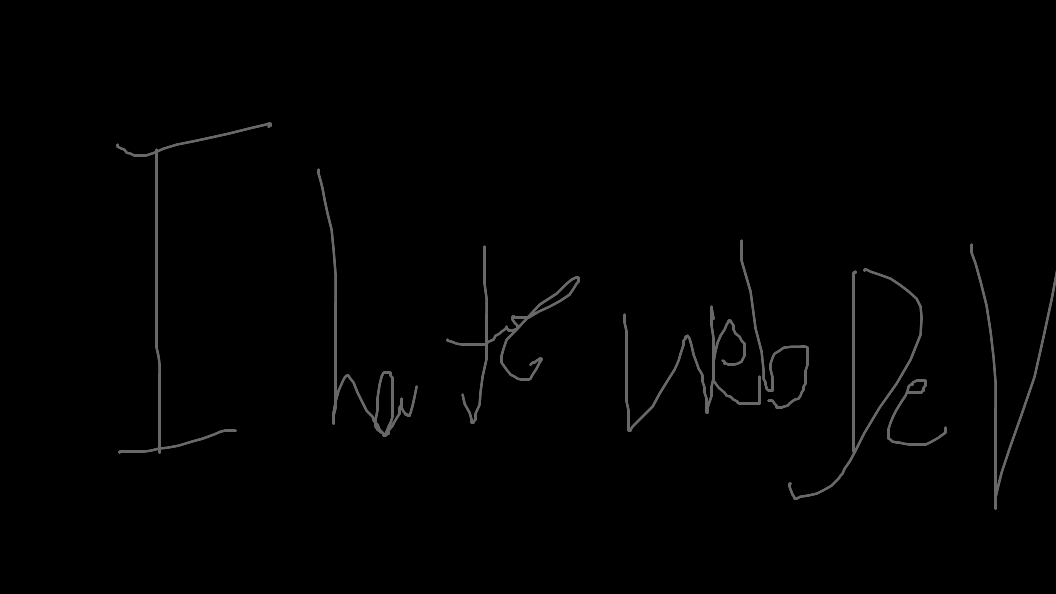 I hate web DeV